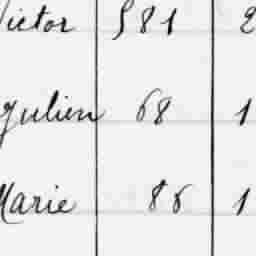 Victor 581 2
Julien 68 1
Marie 86 1